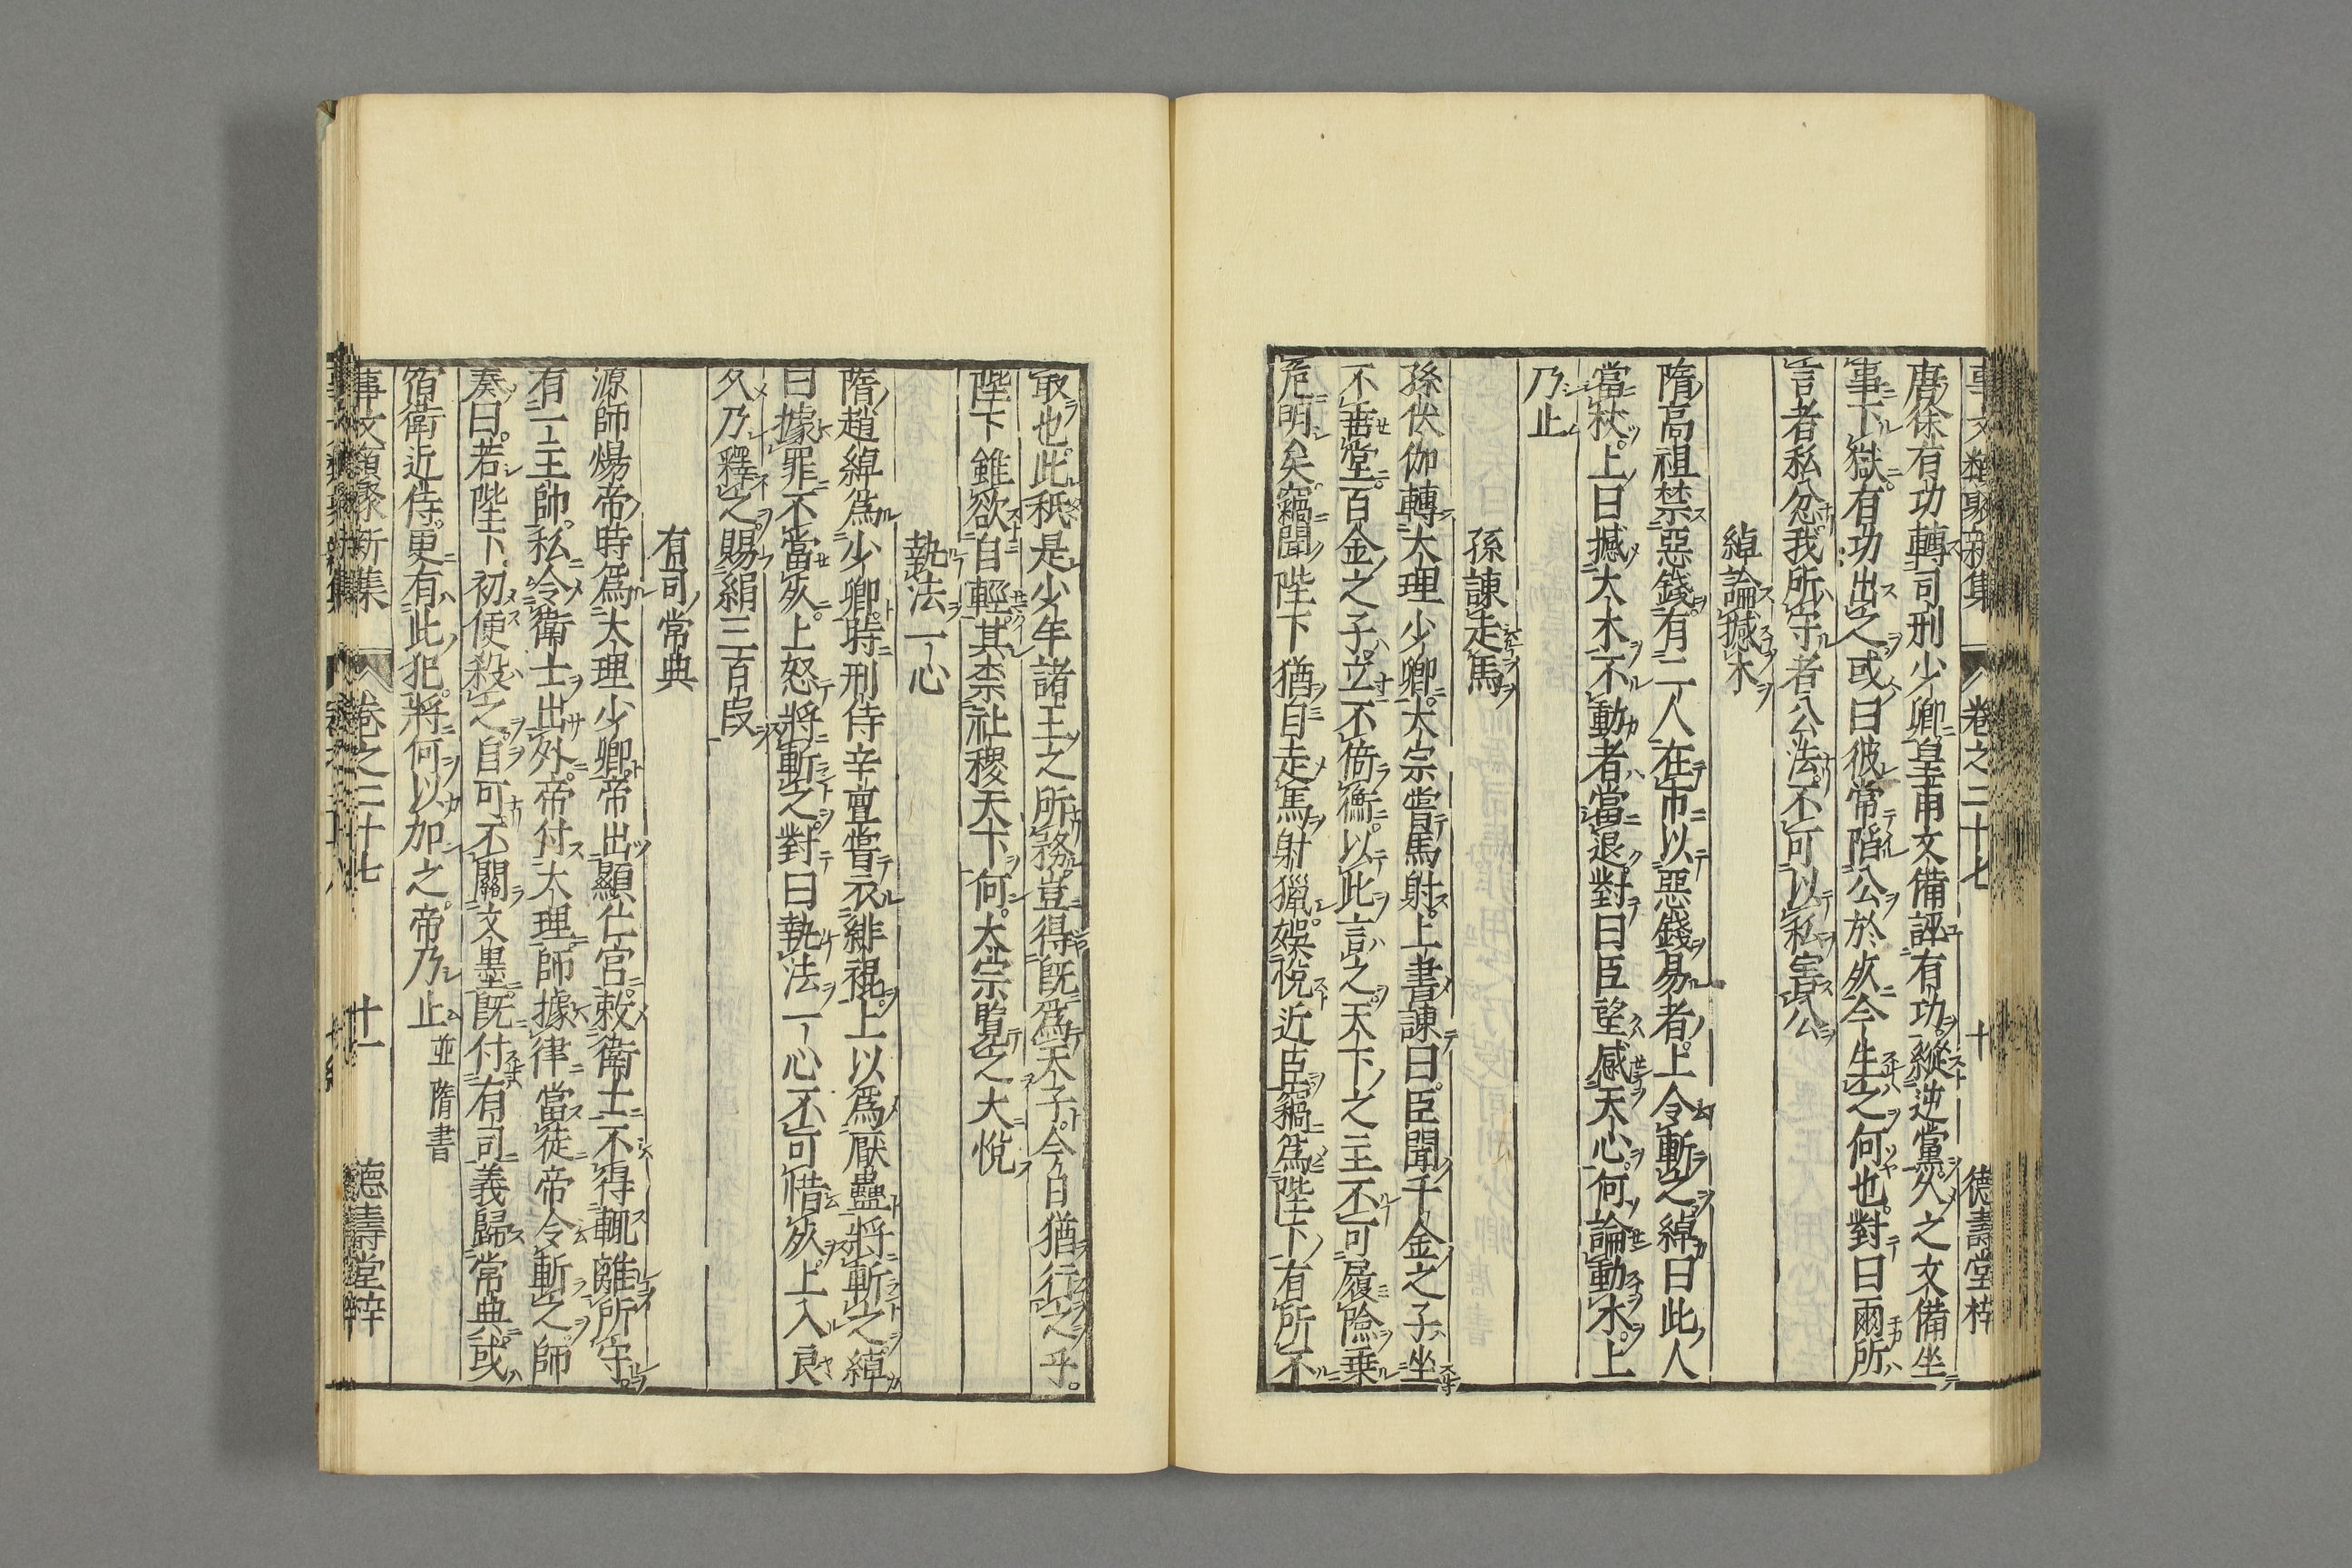 事文類聚新集 卷之二十七 十 德壽堂梓
唐徐有功轉司刑少卿皇甫文備誣有功縱逆黨久之文備坐
事下獄有功出之或曰彼常陷公於死今生之何也對曰爾所
言者私忿我所守者公法不可以私害公
綽論撼木
隋高祖禁惡錢有二人在市以惡錢易者上令斬之綽曰此人
當杖上曰撼大木不動者當退對曰臣望感天心何論動木上
乃止
孫諫走馬
孫伏伽轉大理少卿太宗嘗馬射上書諫曰臣聞千金之子坐
不垂堂百金之子立不倚衡以此言之天下之主不可履險乘
危明矣竊聞陛下猶自走馬射獵娛悅近臣竊爲陛下有所不
取也此秖是少年諸王之所務豈得旣爲天子今日猶行之乎
陛下雖欲自輕其柰社稷天下何太宗覽之大悅
執法一心
隋趙綽爲少卿時刑侍辛亶嘗衣緋裩上以爲厭蠱將斬之綽
曰據罪不當死上怒將斬之對曰執法一心不可惜死上入良
久乃釋之賜絹三百段
有司常典
源師煬帝時爲大理少卿帝出顯仁宮敕衛士不得輒離所守
有一主帥私令衛士出外帝付大理師據律當徒帝令斬之師
奏曰若陛下初便殺之自可不關文墨旣付有司義歸常典或
宿衛近侍更有此犯將何以加之帝乃止 並隋書
事文類聚新集 卷之二十七 十一 德壽堂梓